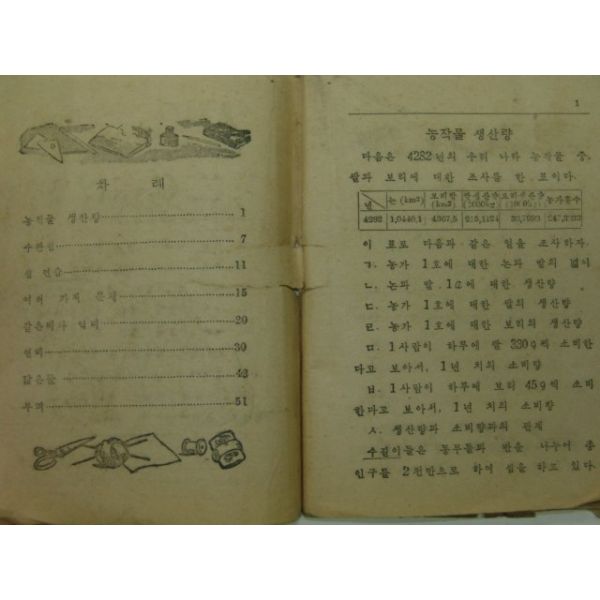 차 례
농작물 생산량 1
7
셈 연습 11
여러 가지 문제 15
20
30
닮은꼴 42
부피 51
1
농작물 생산량
다음은 4282년의 우리 나라 농작물 중,
쌀과 보리에 대한 조사를 한 표이다.
년 논(km²) 보리밭(km²) 농가홋수
4282
이 표로 다음과 같은 일을 조사하자.
ㄱ. 농가 1호에 대한 논과 밭의 넓이
ㄴ. 논과 밭 1a에 대한 생산량
ㄷ. 농가 1호에 대한 쌀의 생산량
ㄹ. 농가 1호에 대한 보리의 생산량
ㅁ. 1사람이 하루에 쌀 330g씩 소비한
다고 보아서, 1년 치의 소비량
ㅂ. 1사람이 하루에 보리 45g씩 소비
한다고 보아서, 1년 치의 소비량
ㅅ. 생산량과 소비량과의 관계
수길이들은 동무들과 반을 나누어 총
인구를 2천만으로 하여 셈을 하고 있다.